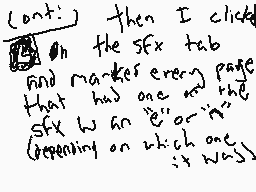 (cont:) then I clicked
on the sfx tab
and marked every page
that had one of the
sfx w an "e" or "n"
(depending on which one
it was)